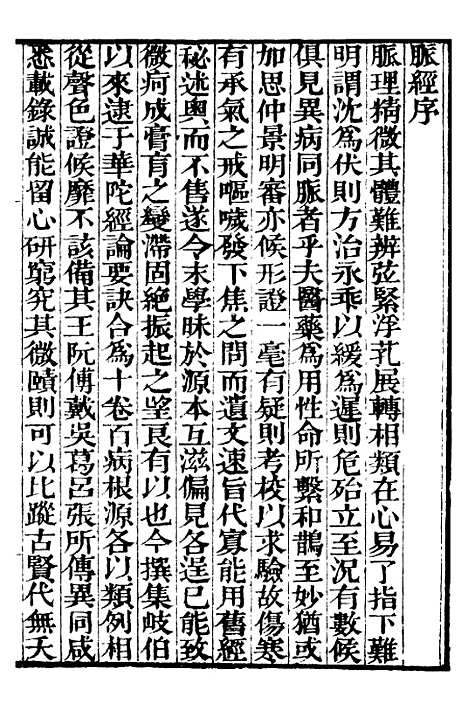 脈經序
脈理精微其體難辨弦緊浮芤展轉相類在心易了指下難
明謂沈爲伏則方治永乖以緩爲遲則危殆立至況有數候
俱見異病同脈者乎夫醫藥爲用性命所繫和鵲至妙猶或
加思仲景明審亦候形證一毫有疑則考校以求驗故傷寒
有承氣之戒嘔噦發下焦之問而遺文遠旨代寡能用舊經
秘述奥而不售遂令末學昧於源本互滋偏見各逞已能致
微痾成膏肓之變滯固絕振起之望良有以也今撰集岐伯
以來逮于華陀經論要訣合爲十卷百病根源各以類例相
從聲色證候靡不該備其王阮傅戴吳葛呂張所傳異同咸
悉載錄誠能留心研窮究其微賾則可以比蹤古賢代無夭